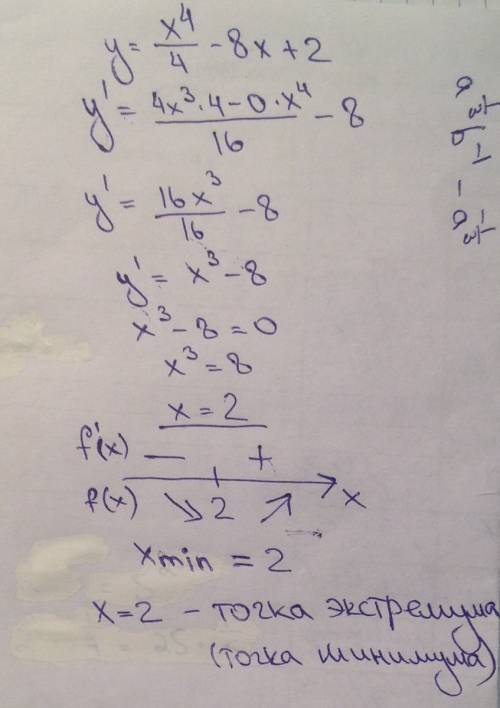 y = x⁴/4 - 8x + 2
y' = (4x³·4 - 0·x⁴)/16 - 8
y' = 16x³/16 - 8
y' = x³ - 8
x³ - 8 = 0
x³ = 8
x = 2
f'(x) — +
f(x) ↘ 2 ↗ x
xmin = 2
x = 2 - точка экстремума
(точка минимума)
a^(1/3) b^(-1) - a^(-1/3)